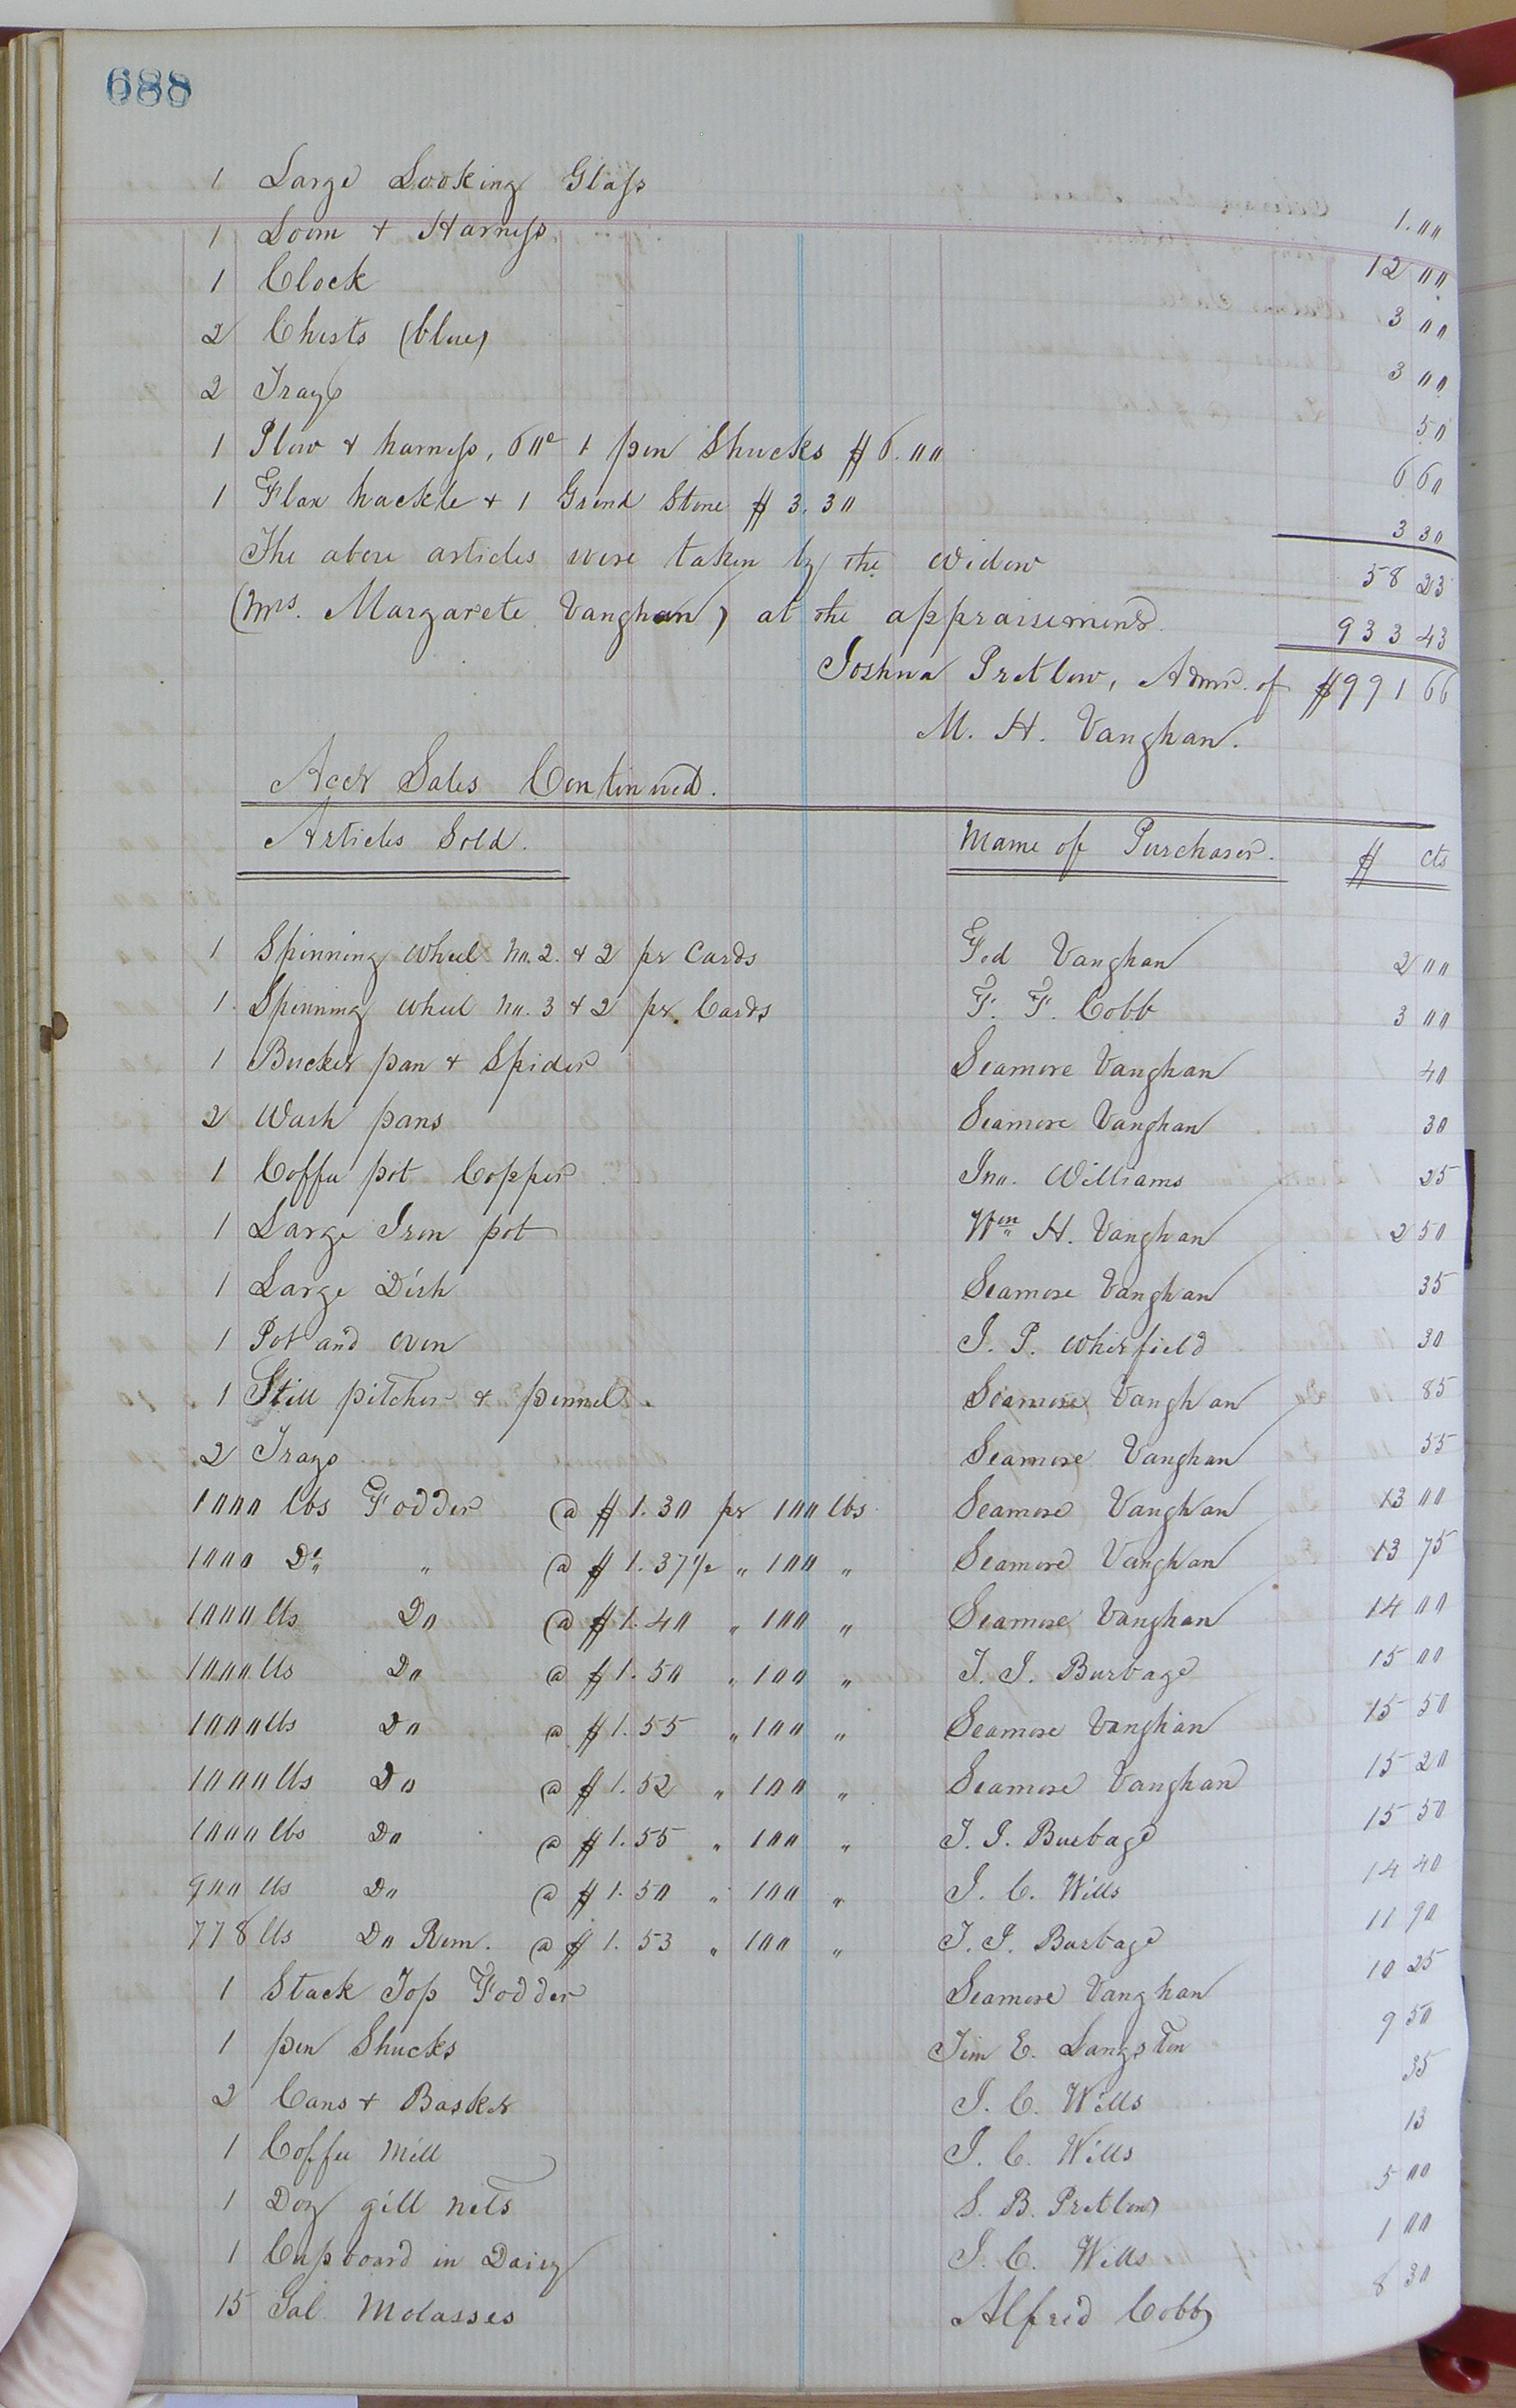 688
1 Large Looking Glass 1.00
1 Loom + Harness 12 00
1 Clock 3 00
2 Chests (blue) 3 00
2 Trays 50
1 Plow & harness, 60c 1 pen Shucks $6.00 6 60
1 Flax hackle + 1 Grind Stone $3.30 3 30
The above articles were taken by the widow 58 23
(Mrs. Margarete Vanghan) at the appraisement. 933 43
Joshua Pretlow, Admr. of $991 66
M. H. Vanghan.
Acct Sales Continued.
Articles Sold. Name of Purchaser. $ cts
1 Spinning wheel No. 2. & 2 pr Cards Fed Vanghan 2 00
1 Spinning wheel No. 3 & 2 pr. Cards F. F. Cobb 3 00
1 Bucket pan + Spider Seamore Vanghan 40
2 Wash pans Seamore Vanghan 30
1 Coffee pot Copper Jno. Williams 25
1 Large Iron pot Wm H. Vanghan 2 50
1 Large Dish Seamore Vanghan 35
1 Pot and oven J. P. Whitfield 30
1 Still pitcher & pennel Seamore Vanghan 85
2 Trays Seamore Vanghan 55
1000 lbs Fodder @ $1.30 pr 100 lbs Seamore Vanghan 13 00
1000 Do " @ $1.37 1/2 " 100 " Seamore Vanghan 13 75
1000 lbs Do @ $1.40 " 100 " Seamore Vanghan 14 00
1000 lbs Do @ $1.50 " 100 " J. J. Burbage 15 00
1000 lbs Do @ $1.55 " 100 " Seamore Vanghan 15 50
1000 lbs Do @ $1.52 " 100 " Seamore Vanghan 15 20
1000 lbs Do @ $1.55 " 100 " J. J. Burbage 15 50
900 lbs Do @ $1.50 " 100 " J. C. Wills 14 40
778 lbs Do Rem. @ $1.53 " 100 " J. J. Burbage 11 90
1 Stack Top Fodder Seamore Vanghan 10 25
1 pen Shucks Jim E. Langston 9 50
2 Cans + Basket J. C. Wills 35
1 Coffee Mill J. C. Wills 13
1 Doz gill nets S. B. Pretlow 5 00
1 Cupboard in Dairy J. C. Wills 1 00
15 Gal. Molasses Alfred Cobb 8 30